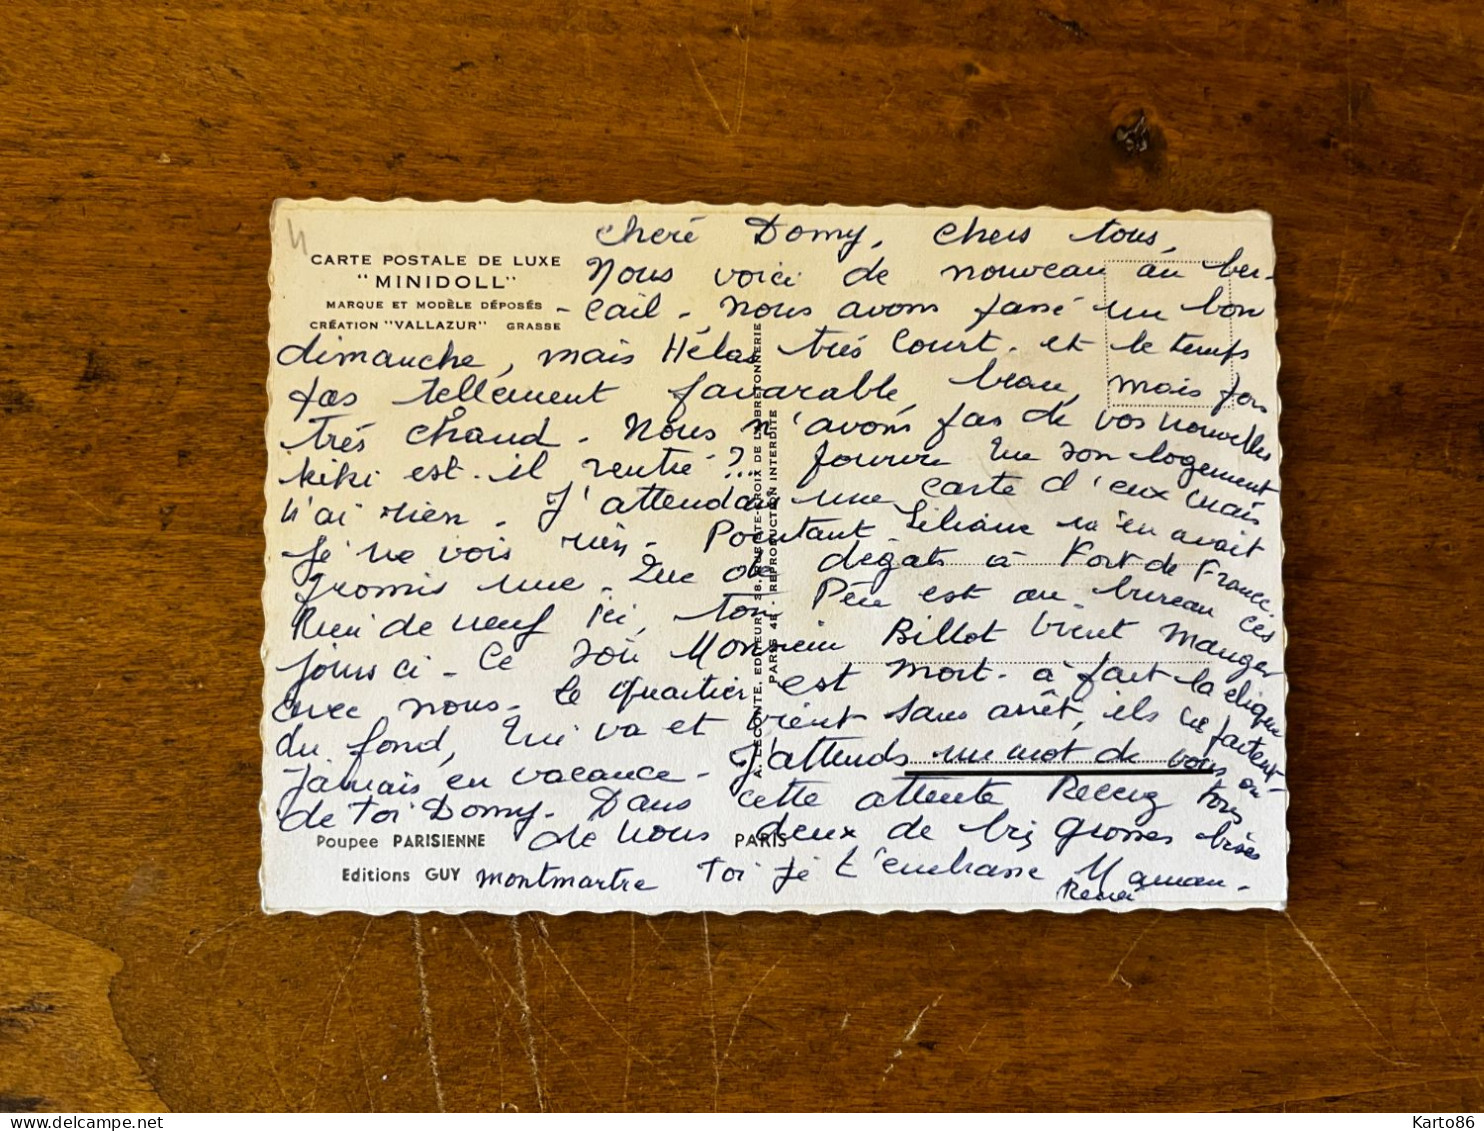 CARTE POSTALE DE LUXE
"MINIDOLL"
MARQUE ET MODÈLE DÉPOSÉS
CRÉATION "VALLAZUR" GRASSE
cheré Domy, chers tous,
Nous voici de nouveau au ber-
-cail - nous avons passé un bon
dimanche, mais Hélas très Court - et le temps
pas tellement favorable, beau, mais pas
très chaud - Nous n'avons pas de vos nouvelles
kiki est-il rentré ?.. son logement
n'ai rien - J'attendais une carte d'eux mais
Je ne vois rien - Pourtant Liliane m'en avait
promis une - Que de dégats à Fort de France.
Rien de neuf ici, ton Père est au bureau ces
jours ci - Ce soir Monsieur Billot vient manger
avec nous - le quartier est mort - à part la clique
du fond, qui va et vient sans arrêt, ils ne partent
jamais en vacance - J'attends un mot de vous ou
de toi Domy. Dans cette attente Recevez tous
de nous deux de très grosses bises
Toi je t'embrasse Maman -
Renée
A. LECONTE, EDITEUR, 38, RUE STE-CROIX DE LA BRETONNERIE
PARIS 4E - REPRODUCTION INTERDITE
Poupee PARISIENNE
PARIS
Editions GUY
montmartre
Karto86
delcampe.net